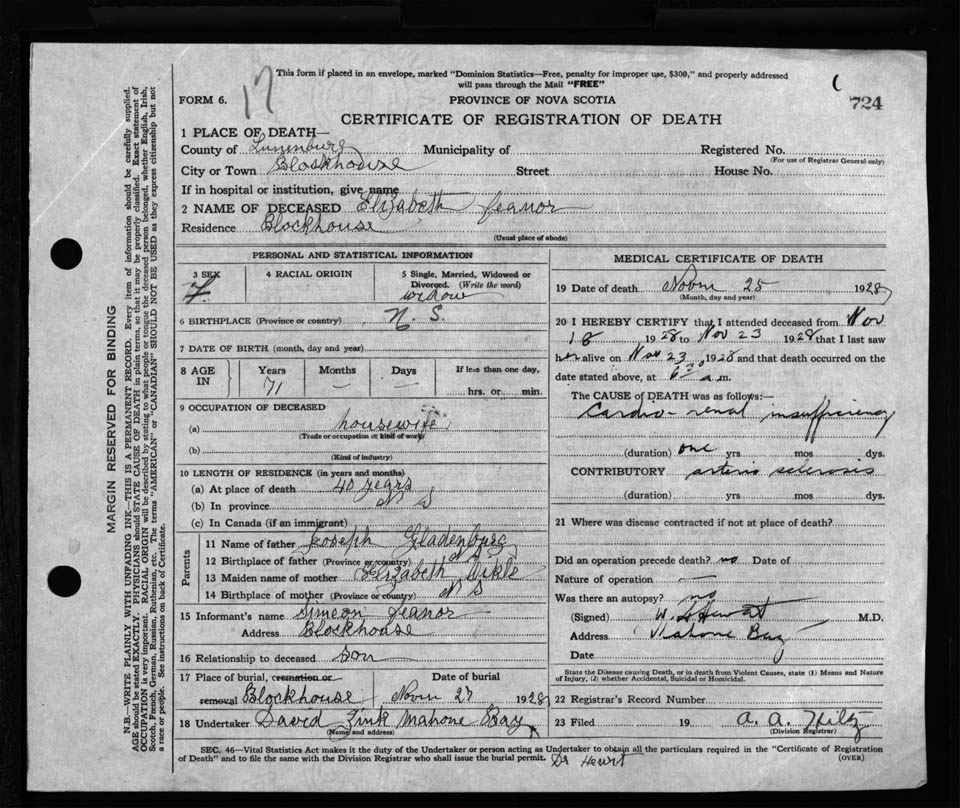 17
This form if placed in an envelope, marked "Dominion Statistics—Free, penalty for improper use, $300," and properly addressed
will pass through the Mail "FREE"
FORM 6.
PROVINCE OF NOVA SCOTIA
724
CERTIFICATE OF REGISTRATION OF DEATH
1 PLACE OF DEATH—
County of Lunenburg Municipality of Registered No.
(For use of Registrar General only)
City or Town Blockhouse Street House No.
If in hospital or institution, give name
2 NAME OF DECEASED Elizabeth Jeanor
Residence Blockhouse
(Usual place of abode)
PERSONAL AND STATISTICAL INFORMATION
3 SEX 4 RACIAL ORIGIN 5 Single, Married, Widowed or
Divorced. (Write the word)
F. widow
6 BIRTHPLACE (Province or country) N. S.
7 DATE OF BIRTH (month, day and year)
8 AGE IN Years Months Days If less than one day,
71 — — hrs. or min.
9 OCCUPATION OF DECEASED
(a) housewife
(Trade or occupation or kind of work)
(b)
(Kind of industry)
10 LENGTH OF RESIDENCE (in years and months)
(a) At place of death 40 years
(b) In province N S
(c) In Canada (if an immigrant)
Parents
11 Name of father Joseph Gladenburg
12 Birthplace of father (Province or country) N S
13 Maiden name of mother Elizabeth
14 Birthplace of mother (Province or country) N S
15 Informant's name Simeon Jeanor
Address Blockhouse
16 Relationship to deceased Son
17 Place of burial, cremation or Date of burial
removal Blockhouse Novm 27 1928
18 Undertaker David Zink Mahone Bay
(Name and address)
MEDICAL CERTIFICATE OF DEATH
19 Date of death Novm 25 1928
(Month, day and year)
20 I HEREBY CERTIFY that I attended deceased from Nov
18 1928 to Nov 23 1928 that I last saw
her alive on Nov 23, 1928 and that death occurred on
date stated above, at 6 30 a.m.
The CAUSE of DEATH was as follows:—
Cardio-renal insufficiency
(duration) one yrs mos dys.
CONTRIBUTORY arterio sclerosis
(duration) yrs mos dys.
21 Where was disease contracted if not at place of death?
Did an operation precede death? no Date of
Nature of operation —
Was there an autopsy? no
(Signed) M.D.
Address Mahone Bay
Date
State the Disease causing Death, or in death from Violent Causes, state (1) Means and Nature
of Injury, (2) whether Accidental, Suicidal or Homicidal.
22 Registrar's Record Number
23 Filed 19 A. A. Hiltz
(Division Registrar)
SEC. 46—Vital Statistics Act makes it the duty of the Undertaker or person acting as Undertaker to obtain all the particulars required in the "Certificate of Registration
of Death" and to file the same with the Division Registrar who shall issue the burial permit.
(OVER)
Dr Hewit
MARGIN RESERVED FOR BINDING
N.B.—WRITE PLAINLY WITH UNFADING INK—THIS IS A PERMANENT RECORD. Every item of information should be carefully supplied.
AGE should be stated EXACTLY. PHYSICIANS should STATE CAUSE OF DEATH in plain terms, so that it may be properly classified. Exact statement of
OCCUPATION is very important. RACIAL ORIGIN will be described by stating to what people or tongue the deceased person belonged, whether English, Irish,
Scotch, French, German, Russian, Ruthenian, etc. The terms "AMERICAN" or "CANADIAN" SHOULD NOT BE USED as they express citizenship but not
a race or people. See instructions on back of Certificate.